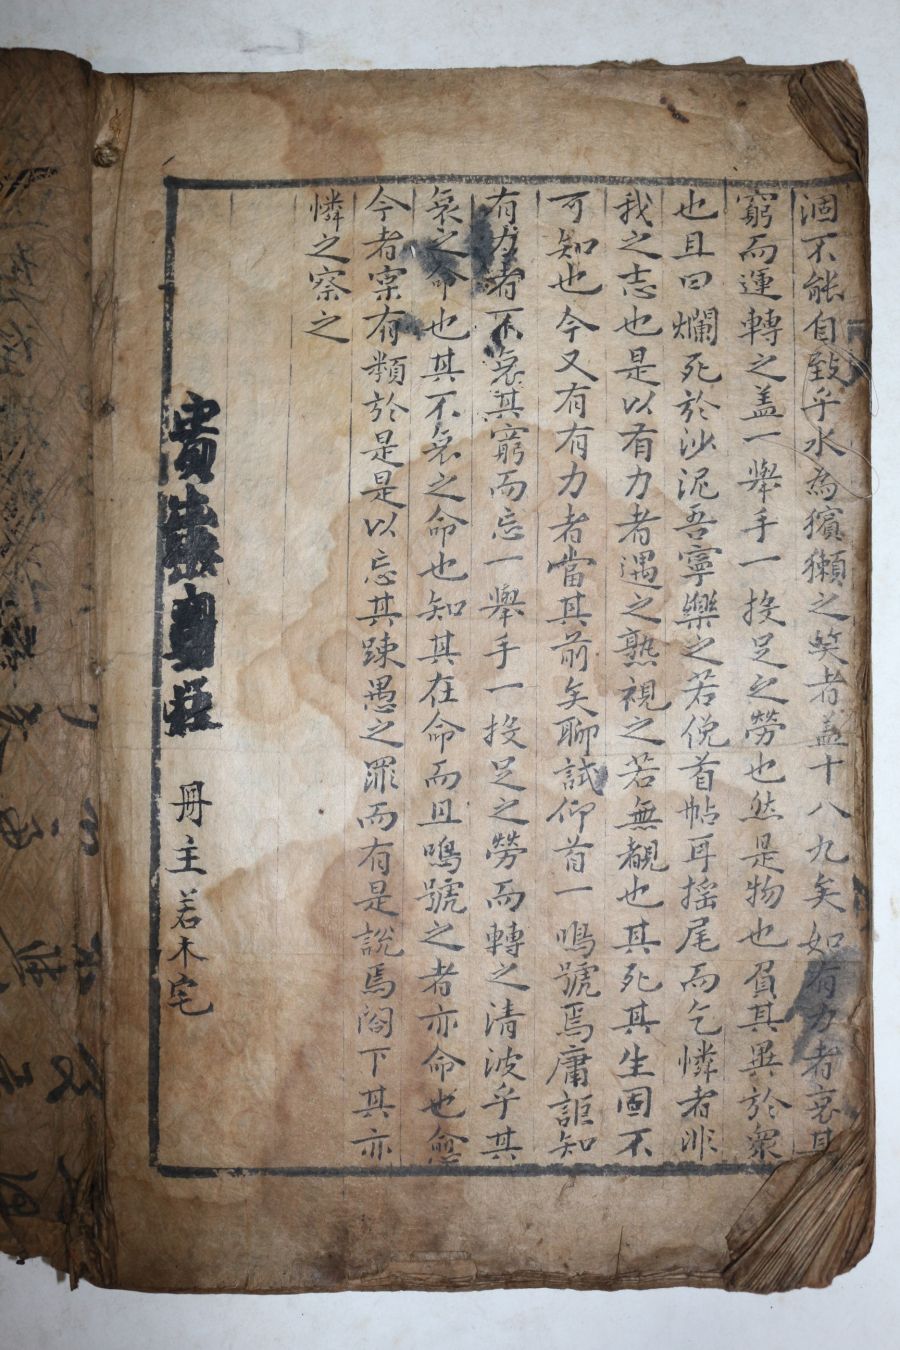 涸不能自致乎水為獱獺之笑者盖十八九矣如有力者哀其
窮而運轉之盖一擧手一投足之勞也然是物也負其異於衆
也且曰爛死於沙泥吾寧樂之若俛首帖耳搖尾而乞憐者非
我之志也是以有力者遇之熟視之若無覩也其死其生固不
可知也今又有有力者當其前矣聊試仰首一鳴號焉庸詎知
有力者不哀其窮而忘一擧手一投足之勞而轉之清波乎其
哀之命也其不哀之命也知其在命而且鳴號之者亦命也愈
今者宲有類於是是以忘其踈愚之罪而有是說焉閤下其亦
憐之察之
冊主若木宅